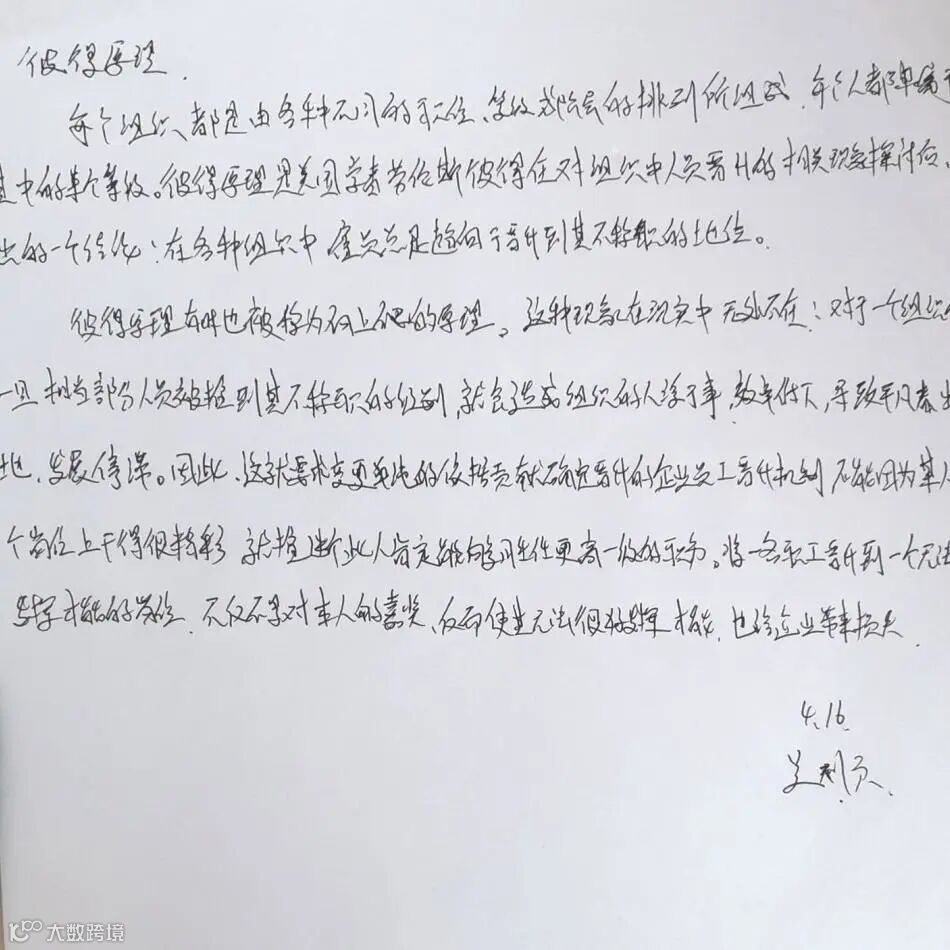 彼得原理.
每个组织都是由各种不同的职位、等级或阶层的排列所组成，每个人都隶属于
其中的某个等级。彼得原理是美国学者劳伦斯彼得在对组织中人员晋升的相关现象探讨后、
出的一个结论：在各种组织中 雇员总是趋向于晋升到其不称职的地位。
彼得原理有时也被称为向上爬的原理。这种现象在现实中无处不在：对于一个组织
一旦相当部分人员被推到其不称职的级别，就会造成组织的人浮于事，效率低下，导致平凡者出
地、发展停滞。因此、这就要求变更单纯的依据贡献确定晋升的企业员工晋升机制 不能因为某人
个岗位上干得很精彩 就推断此人肯定能够胜任更高一级的职务。将一名职工晋升到一个无法
发挥才能的岗位、不仅不是对本人的嘉奖、反而使其无法很好发挥才能，也给企业带来损失.
4.16.
大数跨境